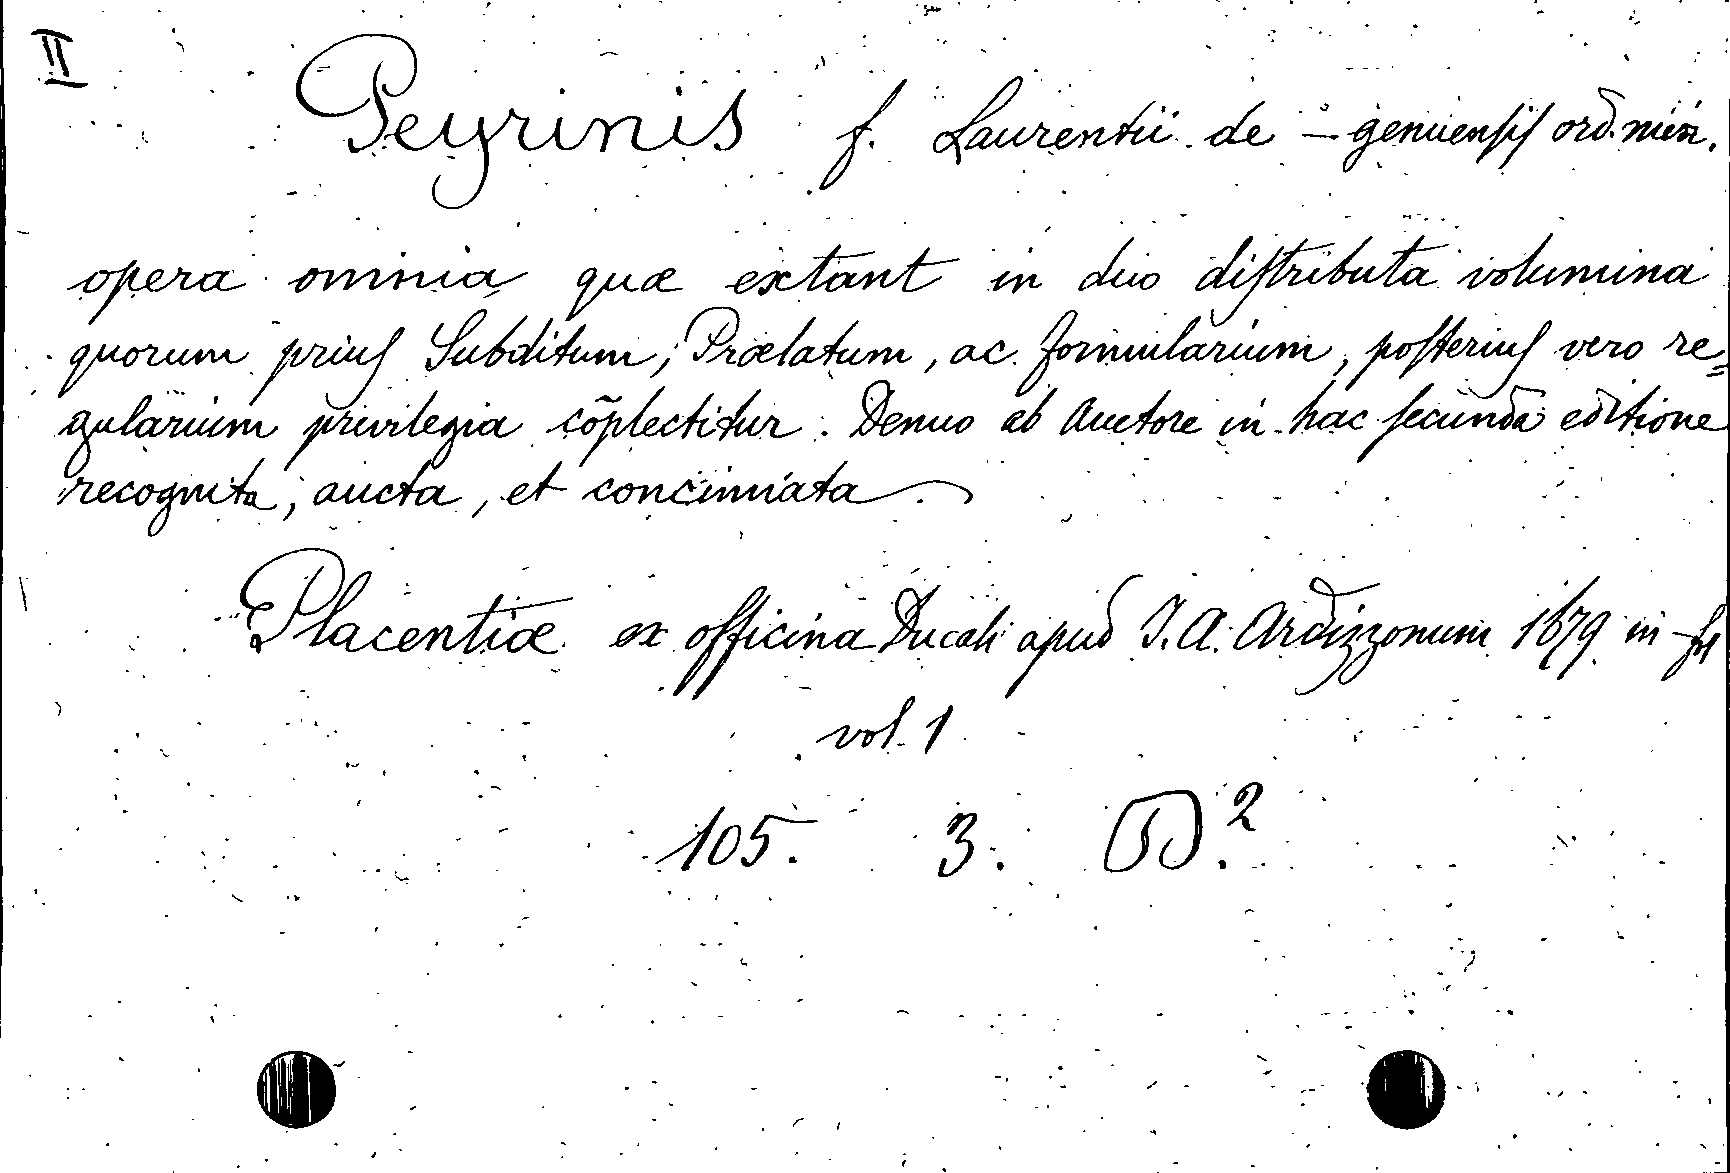 II
Peyrinis f. Laurentii de - genuensis ord. min.
opera omnia quæ extant in duo distributa volumina
quorum prius Subditum, Prælatum, ac formularium, posterius vero re=
gularium privilegia cōplectitur. Denuo ab Auctore in hac secunda editione
recognita, aucta, et concinnata.
Placentiæ ex officina Ducali apud J. A. Ardizzonum 1679 in
vol. 1
105. 3. 2